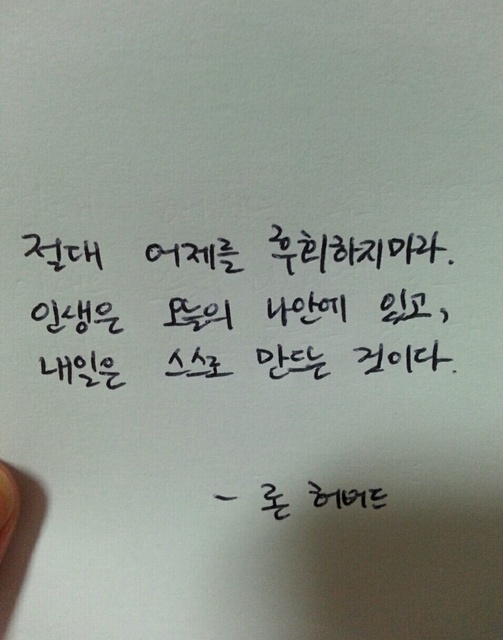 절대 어제를 후회하지마라.
인생은 오늘의 나안에 있고,
내일은 스스로 만드는 것이다.
- 론 허버드